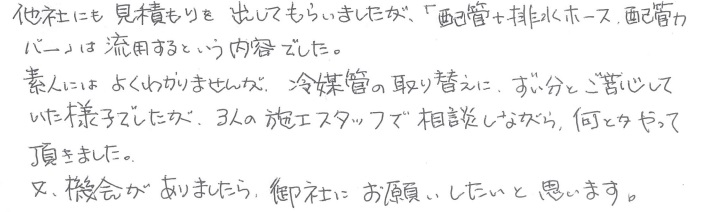 他社にも見積もりを出してもらいましたが、「配管+排水ホース、配管カ
バー」は流用するという内容でした。
素人にはよくわかりませんが、冷媒管の取り替えに、ずい分とご苦心して
いた様子でしたが、3人の施工スタッフで相談しながら、何とかやって
頂きました。
又、機会がありましたら、御社にお願いしたいと思います。